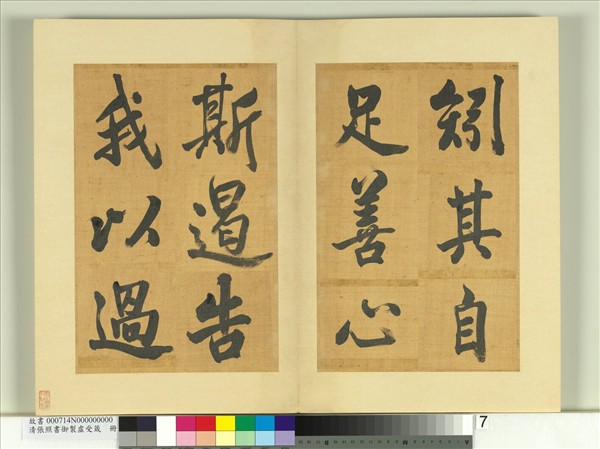 矧其自
足善心
斯遏告
我以過
故書 000714N000000000
清張照書御製虛受箴 冊
7